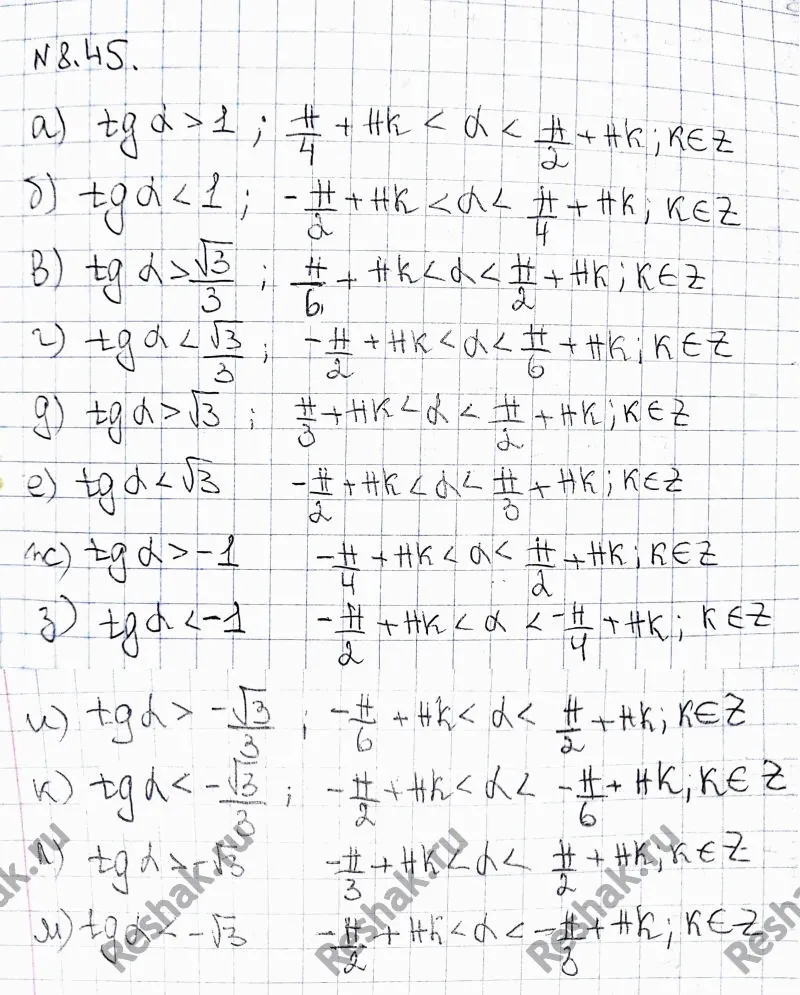 N 8.45.
а) tg α > 1 ; π/4 + πk < α < π/2 + πk ; k ∈ Z
б) tg α < 1 ; -π/2 + πk < α < π/4 + πk ; k ∈ Z
в) tg α > √3/3 ; π/6 + πk < α < π/2 + πk ; k ∈ Z
г) tg α < √3/3 ; -π/2 + πk < α < π/6 + πk ; k ∈ Z
д) tg α > √3 ; π/3 + πk < α < π/2 + πk ; k ∈ Z
е) tg α < √3 -π/2 + πk < α < π/3 + πk ; k ∈ Z
ж) tg α > -1 -π/4 + πk < α < π/2 + πk ; k ∈ Z
з) tg α < -1 -π/2 + πk < α < -π/4 + πk ; k ∈ Z
и) tg α > -√3/3 ; -π/6 + πk < α < π/2 + πk ; k ∈ Z
к) tg α < -√3/3 ; -π/2 + πk < α < -π/6 + πk ; k ∈ Z
л) tg α > -√3 -π/3 + πk < α < π/2 + πk ; k ∈ Z
м) tg α < -√3 -π/2 + πk < α < -π/3 + πk ; k ∈ Z
Reshak.ru
Reshak.ru
Reshak.ru
Reshak.ru